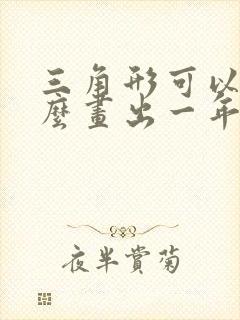 三角形可以
麼畫出一年
夜半賞菊